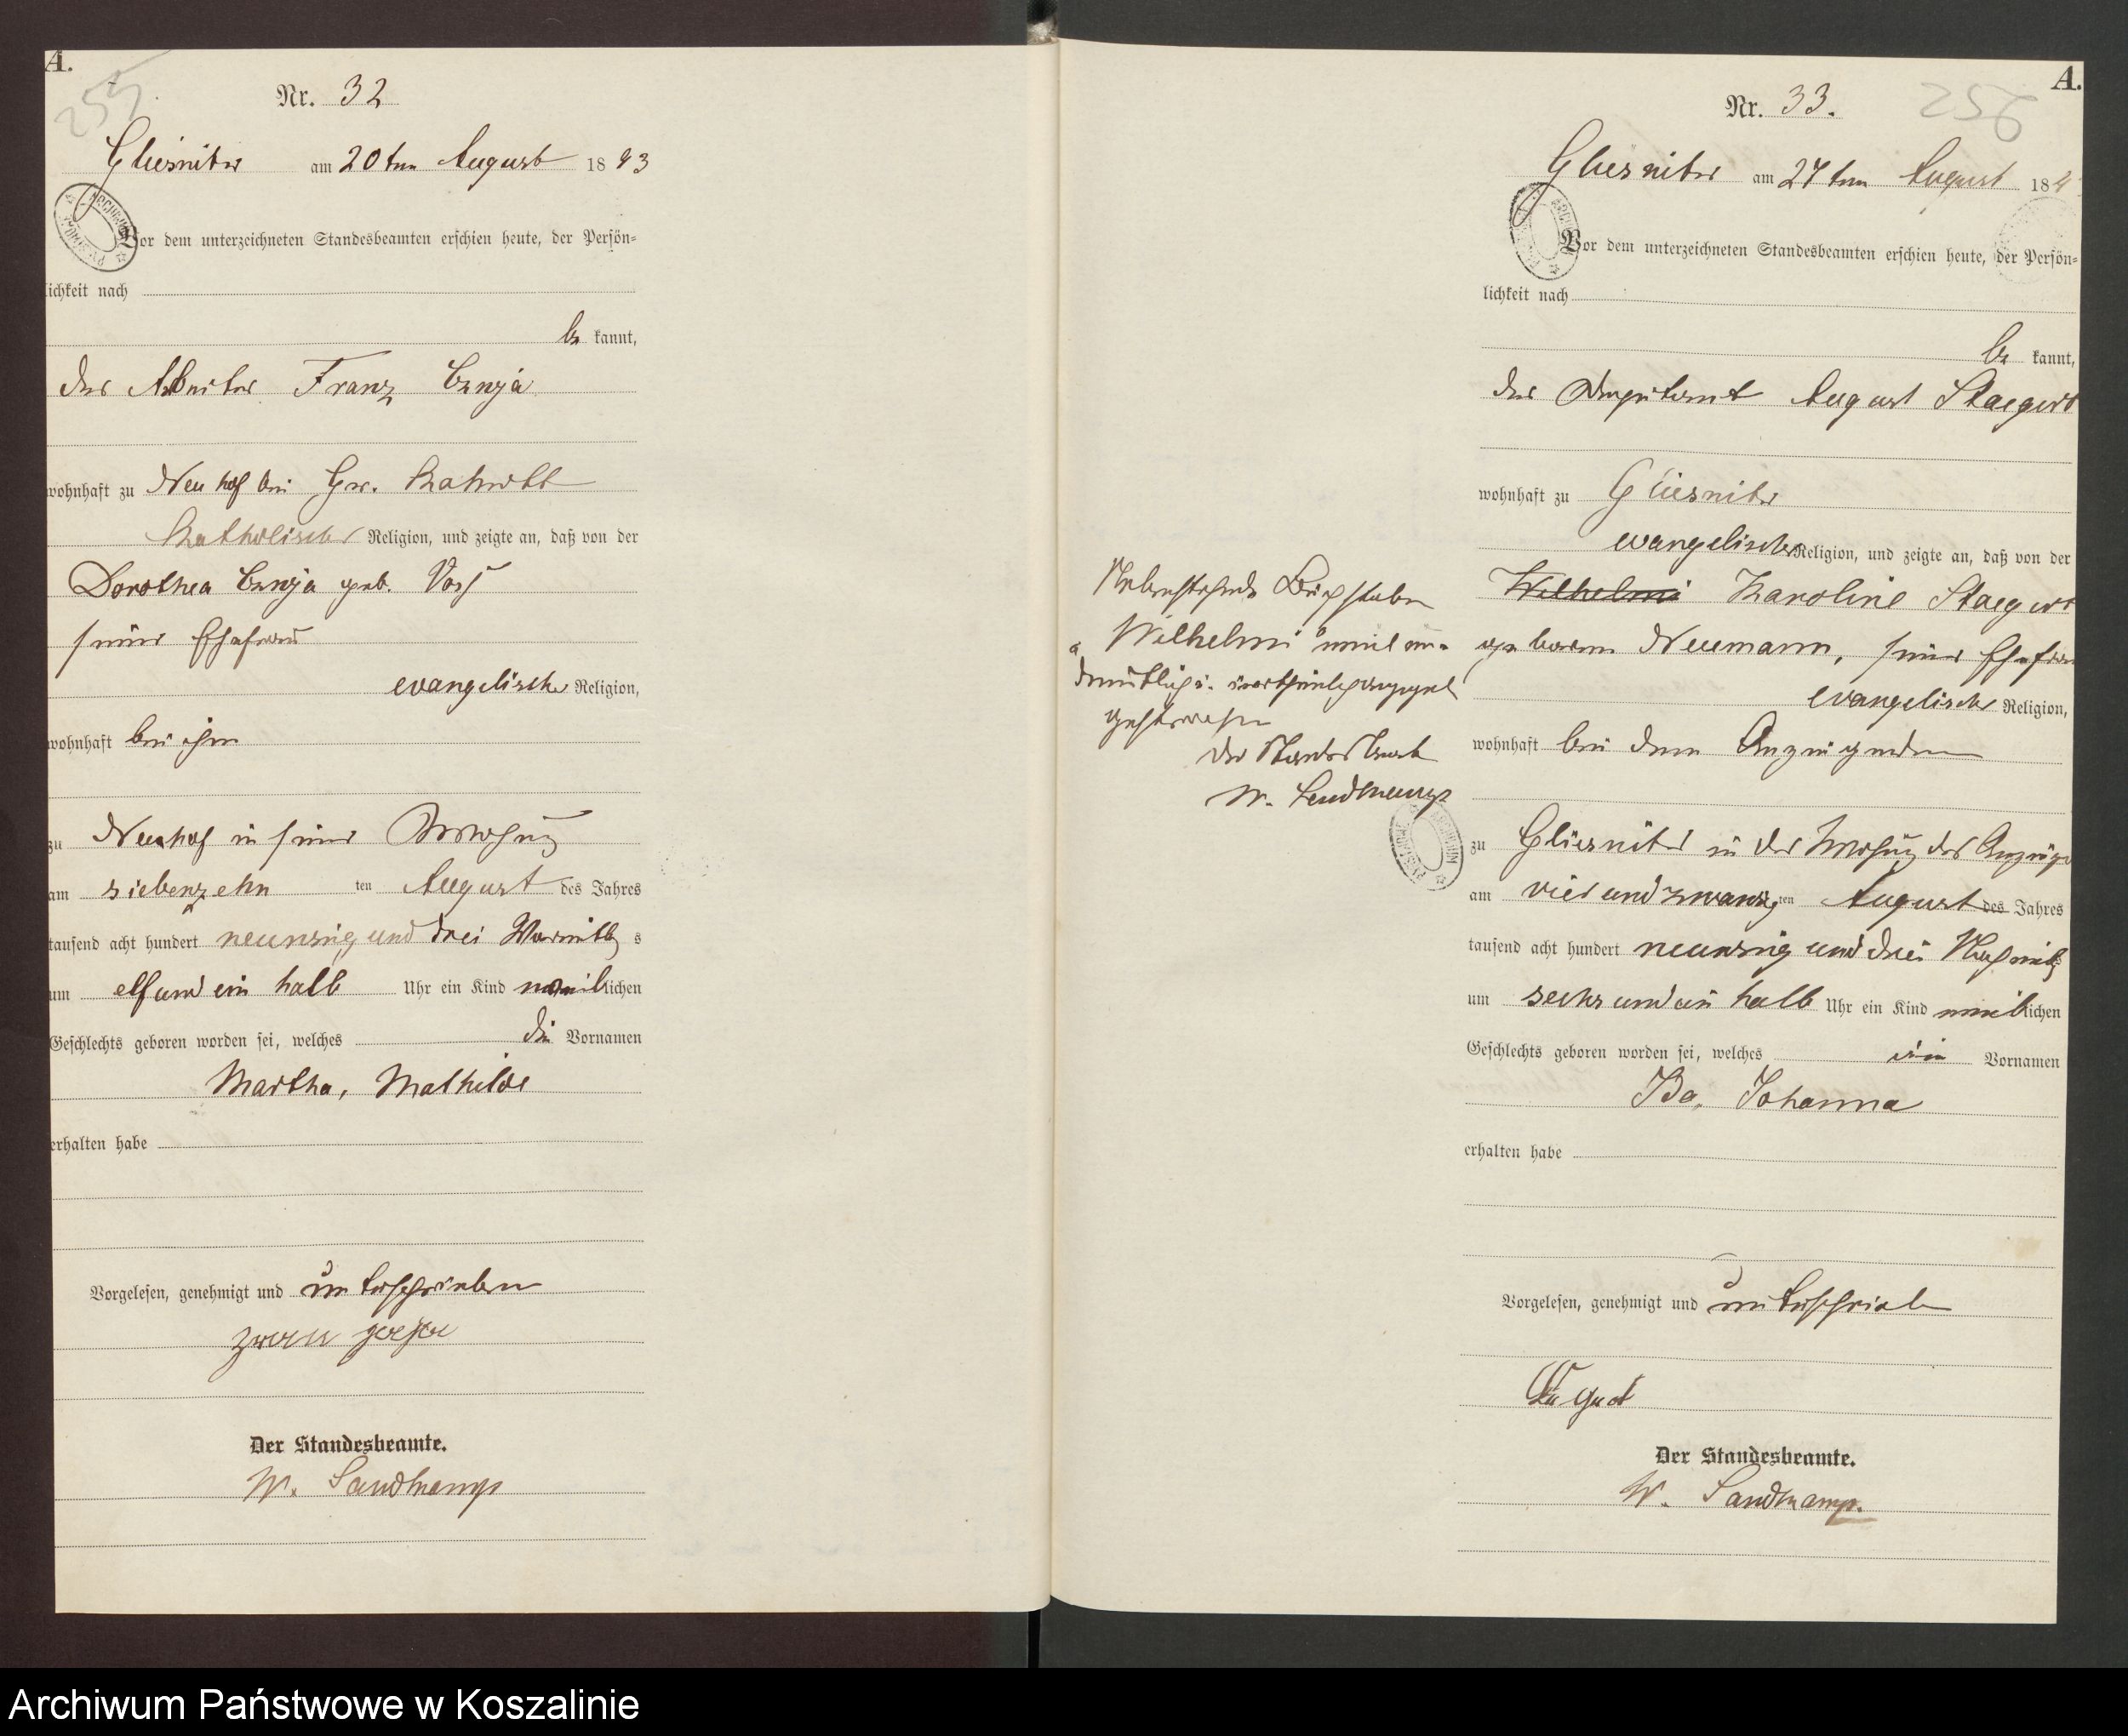 A.
255
Nr. 32
Gliesnitz am 20ten August 1893
Vor dem unterzeichneten Standesbeamten erschien heute, der Persön-
lichkeit nach
be kannt,
der Arbeiter Franz
wohnhaft zu Neuhof bei Gr.
Katholischer Religion, und zeigte an, daß von der
Dorothea geb. Voß
seiner Ehefrau
evangelischer Religion,
wohnhaft bei ihm
zu Neuhof in seiner Wohnung
am siebenzehn ten August des Jahres
tausend acht hundert neunzig und drei Vormittags
um elf und ein halb Uhr ein Kind weiblichen
Geschlechts geboren worden sei, welches die Vornamen
Martha, Mathilde
erhalten habe
Vorgelesen, genehmigt und unterschrieben
Der Standesbeamte.
W. Sandkamp
A.
256
Nr. 33.
Gliesnitz am 27ten August 18
Vor dem unterzeichneten Standesbeamten erschien heute, der Persön-
lichkeit nach
be kannt,
der Deputant August Staegert
wohnhaft zu Gliesnitz
evangelischer Religion, und zeigte an, daß von der
Wilhelmi Karoline Staegert
geborne Neumann, seiner Ehefrau
evangelischer Religion,
wohnhaft bei dem Anzeigenden
zu Gliesnitz in der Wohnung des Anzeige
am vier und zwanzig ten August des Jahres
tausend acht hundert neunzig und drei Nachmittags
um sechs und ein halb Uhr ein Kind weiblichen
Geschlechts geboren worden sei, welches die Vornamen
Ida, Johanna
erhalten habe
Vorgelesen, genehmigt und unterschrieben
August
Der Standesbeamte.
W. Sandkamp.
Nebenstehende Buchstaben
Wilhelmi weil un-
deutlich u.
gestrichen
Der Standesbeamte
W. Sandkamp
Archiwum Państwowe w Koszalinie